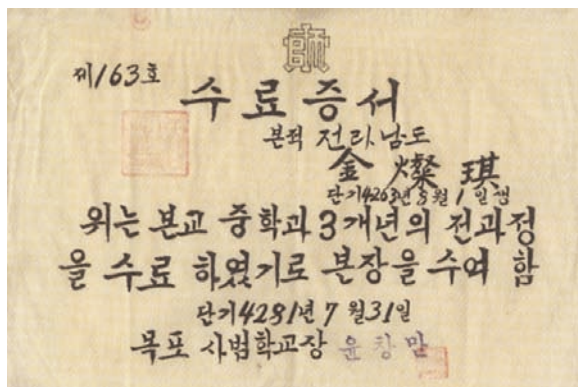 제163호
수료증서
본적 전라남도
金燦琪
단기4263년 8월 1일생
위는 본교 중학과 3개년의 전과정
을 수료 하였기로 본장을 수여 함
단기4281년 7월31일
목포 사범학교장 윤창맘